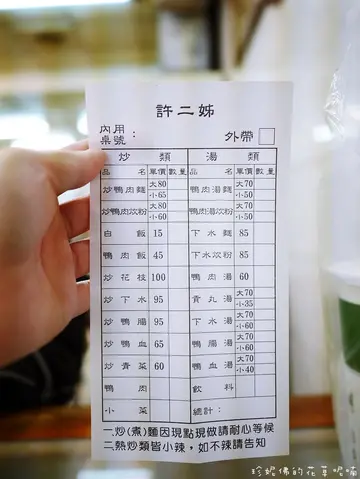 許二姊
內用
桌號： 外帶
炒 類 湯 類
品 名 單價 數量 品 名 單價 數量
炒鴨肉麵 大80 小65 鴨肉湯麵 大70 小50
炒鴨肉炊粉 大80 小60 鴨肉湯炊粉 大70 小50
白 飯 15 下水麵 85
鴨肉飯 45 下水炊粉 85
炒花枝 100 鴨肉湯 60
炒下水 95 青丸湯 大70 小35
炒鴨腸 95 下水湯 大70 小60
炒鴨血 65 鴨腸湯 大70 小60
炒青菜 60 鴨血湯 大70 小40
鴨 肉 飲 料
小 菜 總計：
一.炒(煮)麵因現點現做請耐心等候
二.熱炒類皆小辣，如不辣請告知
珍妮佛的花草呢喃